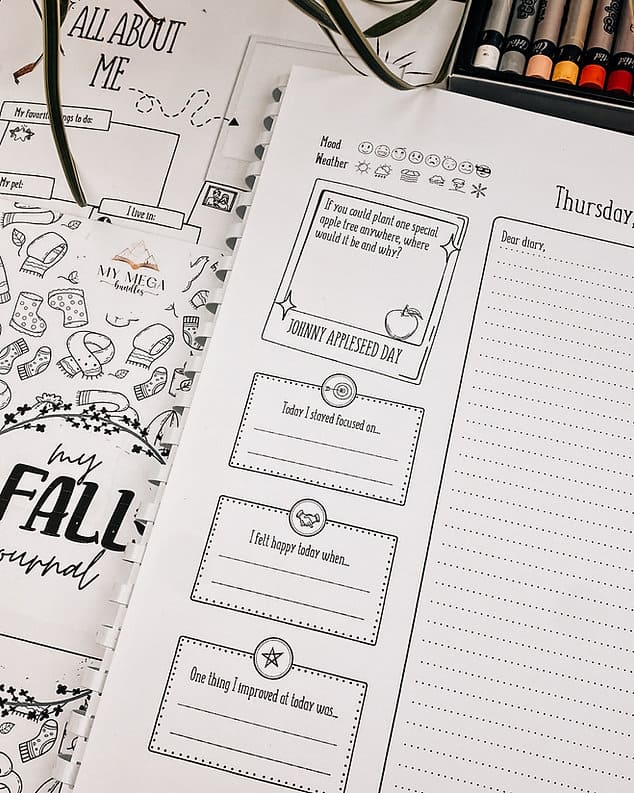 ALL ABOUT
ME
My pet:
I live in:
MY MEGA
bundles
my
FALL
Mood
Weather
Thursday,
If you could plant one special
apple tree anywhere, where
would it be and why?
JOHNNY APPLESEED DAY
Today I stayed focused on...
I felt happy today when...
One thing I improved at today was...
Dear diary,